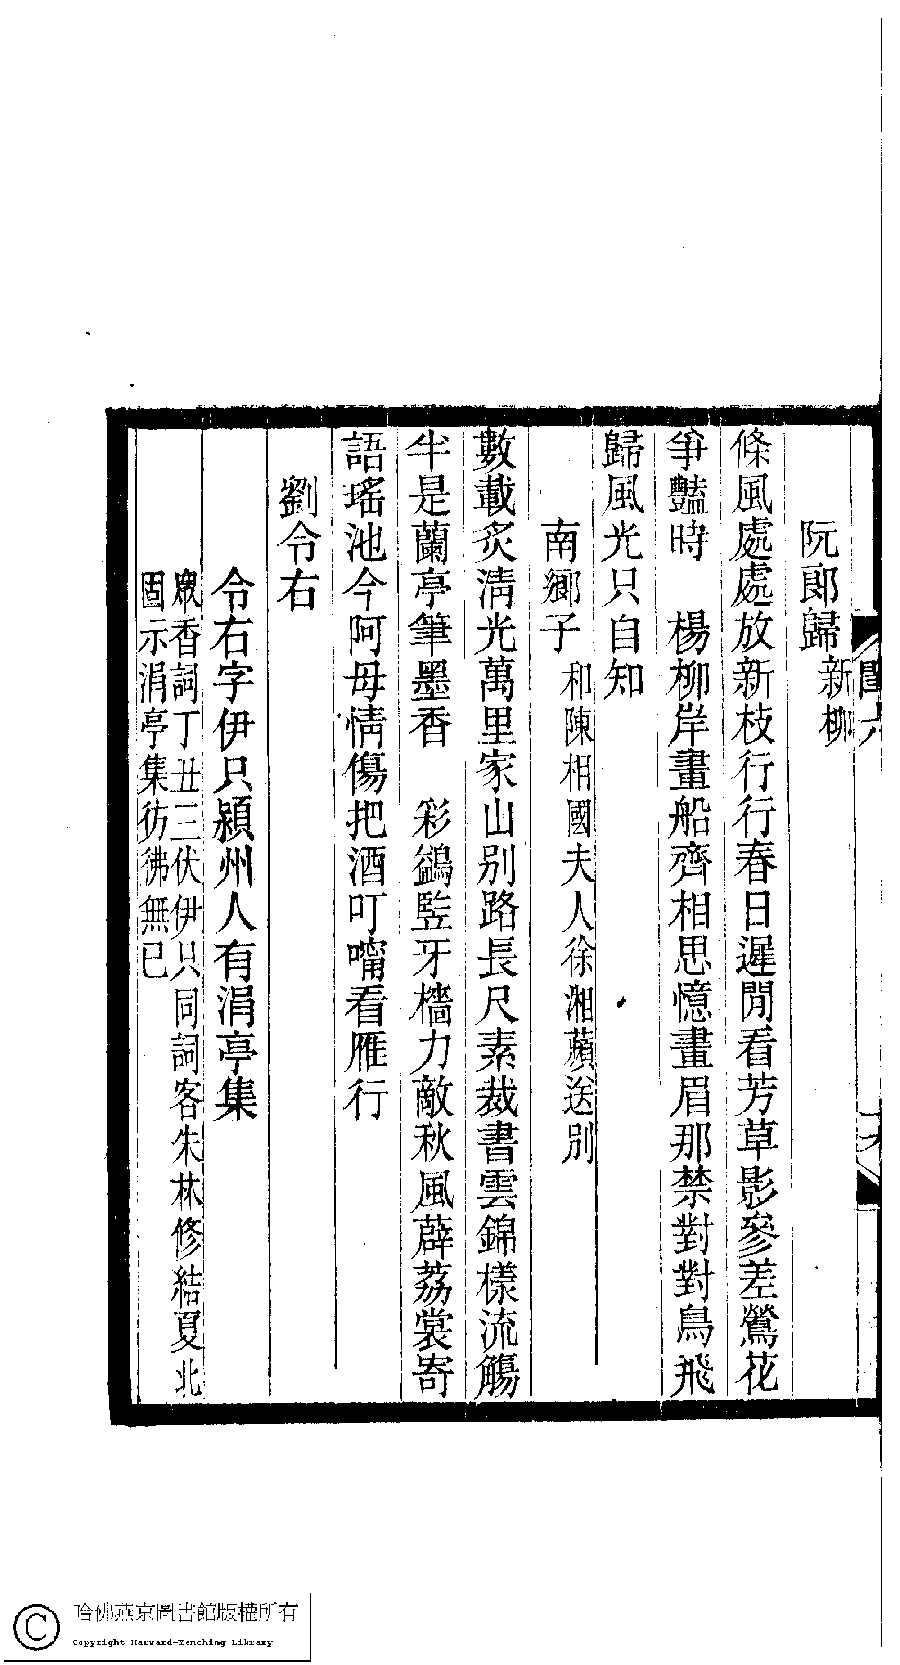 阮郎歸新柳
條風處處放新枝行行春日遲閒看芳草影參差鶯花
爭豔時　楊柳岸畫船齊相思憶畫眉那禁對對鳥飛
歸風光只自知
南鄉子和陳相國夫人徐湘蘋送別
數載炙清光萬里家山別路長尺素裁書雲錦樣流觴
半是蘭亭筆墨香　彩鷁豎牙檣力敵秋風薜荔裳寄
語瑤池今阿母情傷把酒叮嚀看雁行
劉令右
令右字伊只潁州人有涓亭集
眾香詞丁丑三伏伊只同詞客朱林修結夏北
固示涓亭集彷彿無已
哈佛燕京圖書館版權所有
Copyright Harvard-Yenching Library